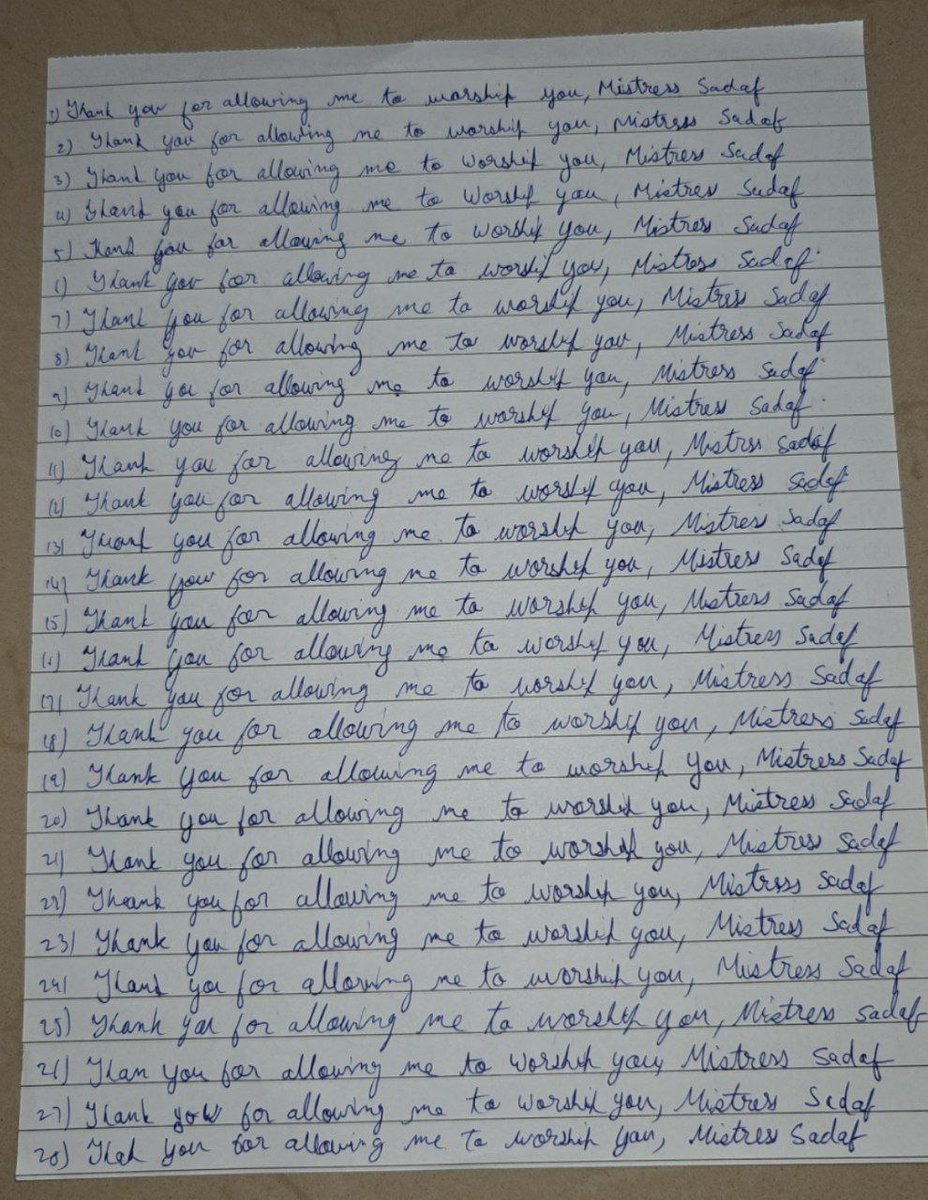 1) Thank you for allowing me to worship you, Mistress Sadaf
2) Thank you for allowing me to worship you, Mistress Sadaf
3) Thand you for allowing me to Worship you, Mistress Sadaf
4) Thand you for allowing me to Worship you, Mistres Sadaf
5) Thand you for allowing me to worship you, Mistress Sadaf
6) Thank you for allowing me to worship you, Mistress Sadaf
7) Thank you for allowing me to worship you, Mistress Sadaf
8) Thank you for allowing me to worship you, Mistress Sadaf
9) Thank you for allowing me to worship you, Mistress Sadaf
10) Thank you for allowing me to worship you, Mistress Sadaf
11) Thank you for allowing me to worship you, Mistrss Sadaf
12) Thank you for allowing me to worship you, Mistress Sadaf
13) Thank you for allowing me to worship you, Mistress Sadaf
14) Thank you for allowing me to worship you, Mistress Sadaf
15) Thank you for allowing me to worship you, Mistress Sadaf
16) Thank you for allowing me to worship you, Mistress Sadaf
17) Thank you for allowing me to worship you, Mistress Sadaf
18) Thank you for allowing me to worship you, Mistress Sadaf
19) Thank you for allowing me to worship you, Mistress Sadaf
20) Thank you for allowing me to worship you, Mistress Sadaf
21) Thank you for allowing me to worship you, Mistress Sadaf
22) Thank you for allowing me to worship you, Mistress Sadaf
23) Thank you for allowing me to worship you, Mistress Sadaf
24) Thand you for allowing me to worship you, Mistress Sadaf
25) Thank you for allowing me to worship you, Mistress Sadaf
26) Than you for allowing me to Worship you, Mistress Sadaf
27) Thank you for allowing me to Worship you, Mistress Sadaf
28) Thak you for allowing me to worship you, Mistress Sadaf